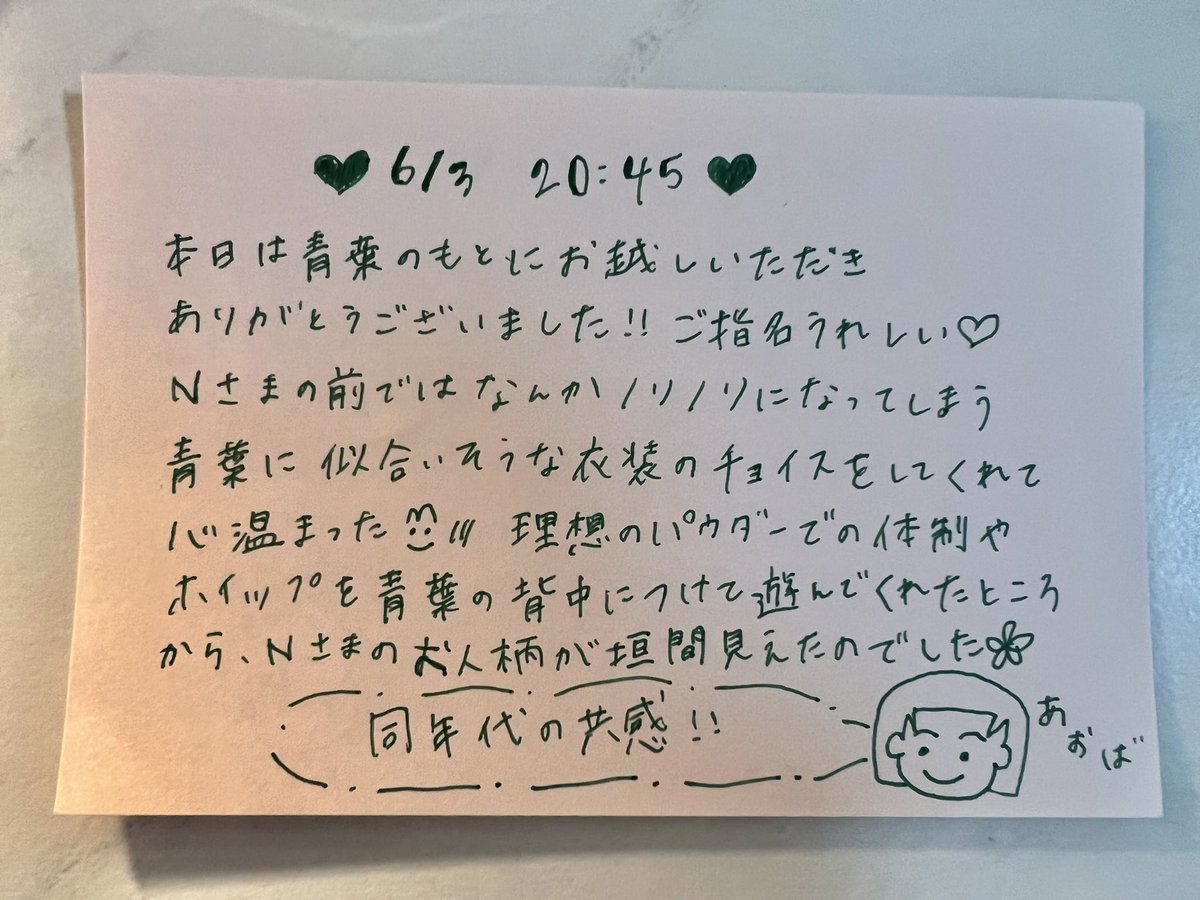 ♥ 6/3 20:45 ♥
本日は青葉のもとにお越しいただき
ありがとうございました!! ご指名うれしい♡
Nさまの前ではなんかノリノリになってしまう
青葉に似合いそうな衣装のチョイスをしてくれて
心温まった 理想のパウダーでの体制や
ホイップを青葉の背中につけて遊んでくれたところ
から、Nさまのお人柄が垣間見えたのでした
同年代の共感!!
あおば